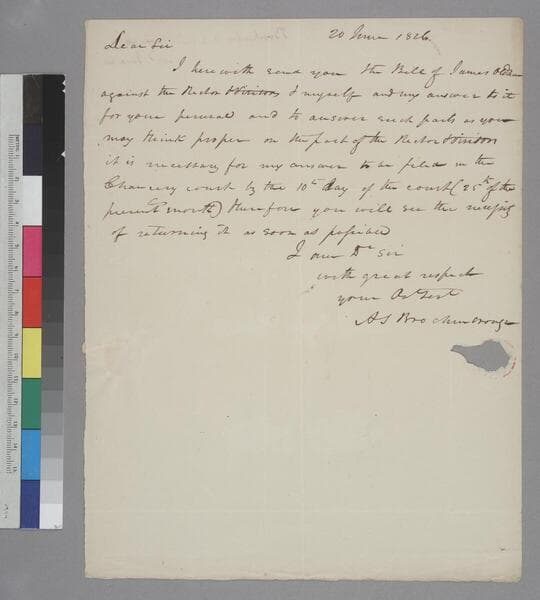 20 June 1826
Dear Sir
I herewith send you the Bill of James Oldham
against the Rector & Visitors & myself and my answer to it
for your perusal and to answer such parts as you
may think proper on the part of the Rector & Visitors
it is necessary for my answer to be filed in the
Chancery court by the 10th day of the court (25th of the
present month) therefore you will see the necessity
of returning it as soon as possible
I am Dr Sir
with great respect
your Obt Servt
A S Brockenbrough